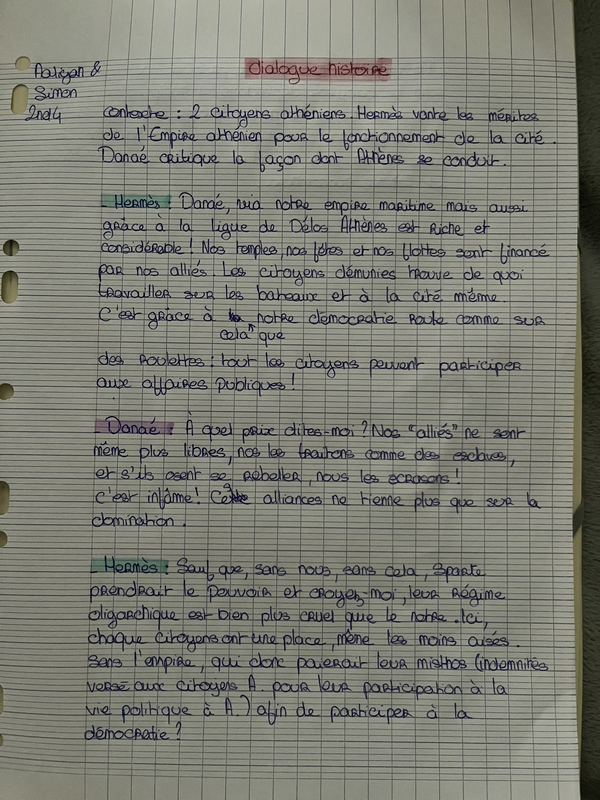 Aaliyah &
Simon
2nd4
dialogue histoire
contexte : 2 citoyens athéniens. Hermès vante les mérites
de l'Empire athénien pour le fonctionnement de la cité.
Danaé critique la façon dont Athènes se conduit.
Hermès : Danaé, via notre empire maritime mais aussi
grâce à la ligue de Délos Athènes est Riche et
considérable ! Nos temples, nos fêtes et nos flottes sont financé
par nos alliés. Les citoyens démunies trouve de quoi
travailler sur les bateaux et à la cité même.
C'est grâce à cela que notre démocratie Roule comme sur
des Roulettes : tout les citoyens peuvent participer
aux affaires publiques !
Danaé : À quel prix dites-moi ? Nos "alliés" ne sont
même plus libres, nos les traitons comme des esclaves,
et s'ils osent se rebeller, nous les écrasons !
C'est infâme ! Ces alliances ne tienne plus que sur la
domination.
Hermès : Sauf que, sans nous, sans cela, Sparte
prendrait le pouvoir et croyez-moi, leur Régime
oligarchique est bien plus cruel que le notre. Ici,
chaque citoyens ont une place, même les moins aisés.
Sans l'empire, qui donc paierait leur misthos (indemnités
versé aux citoyens A. pour leur participation à la
vie politique à A.) afin de participer à la
démocratie ?